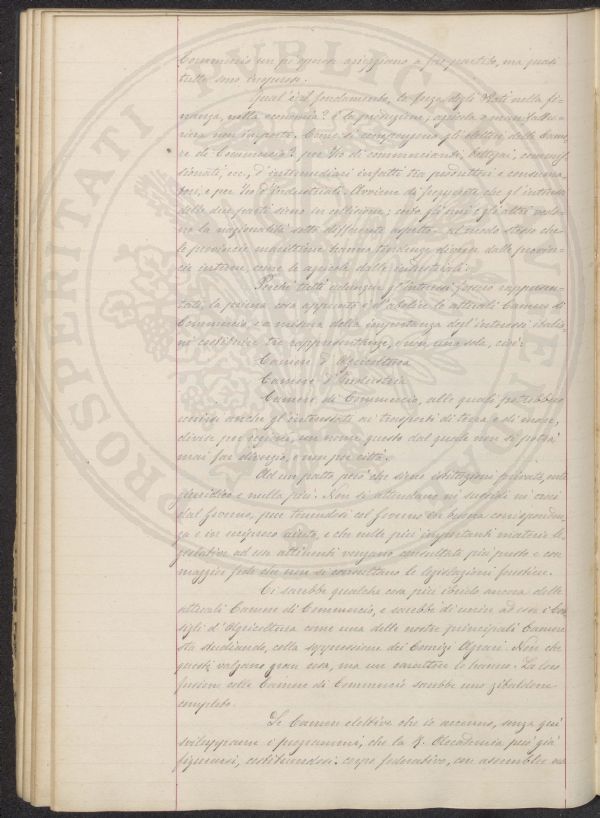 Commercio un po' operose appaiano a far partito, ma quasi
tutte sono inoperose.
Qual'è il fondamento, la forza degli Stati nella fi-
nanza, nella economia? È la produzione; agricola o manifattu-
riera non importa. Come si compongono gli elettori delle Came-
re di Commercio? per ⅔ di commercianti, bottegai, commis-
sionati, ecc., d'intermediari infatti tra produttori e consuma-
tori, e per ⅓ d'industriali. Avviene di frequente che gl'interessi
delle due parti sieno in collisione; che gli uni e gli altri vedo-
no la nazionalità sotto differente aspetto, al modo stesso che
le provincie marittime hanno tendenze diverse dalle provin-
cie interne, come le agricole dalle industriali.
Perchè tutti adunque gl'interessi fossero rappresen-
tati, la prima cosa appunto è d'abolire le attuali Camere di
Commercio, e a misura della importanza degl'interessi italia-
ni costituire tre rappresentanze, e non una sola, cioè:
Camere d'Agricoltura
Camere d'Industria
Camere di Commercio, alle quali potrebbero
unirsi anche gl'interessati ai trasporti di terra e di mare,
divise per regioni, un nome questo dal quale non si potrà
mai far divorzio, e non per città.
Ad un patto però che sieno istituzioni private, ente
giuridico e nulla più. Non si attendano nè sussidi nè cenni
dal Governo, pur tenendosi col Governo in buona corrisponden-
za e in reciproco aiuto, e che nelle più importanti materie le-
gislative ad esse attinenti vengano consultate più presto e con
maggior fede che non si consultano le legislazioni forestiere.
Ci sarebbe qualche cosa più ibrido ancora delle
attuali Camere di Commercio, e sarebbe di unire ad esse i Con-
sigli d'Agricoltura come una delle nostre principali Camere
sta studiando, colla soppressione dei Comizi Agrari. Non che
questi valgano gran cosa, ma un carattere lo hanno. La loro
fusione colle Camere di Commercio sarebbe uno zibaldone
completo.
Le Camere elettive che io accenno, senza qui
svilupparne i programmi, che la R. Accademia può già
figurarsi, costituendosi corpo federativo, con assemblee na
PROSPERITATI PUBLICAE AUGENDAE